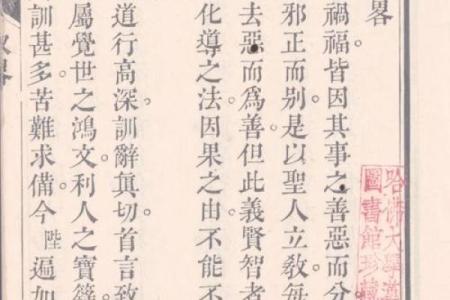 畧
禍福。皆因其事之善惡而分
邪正而別。是以聖人立敎。每
去惡而爲善。但此義賢智者
化導之法。因果之由。不能不
道行高深。訓辭眞切。首言致
屬覺世之鴻文。利人之寶
訓甚多。苦難求備。今陛遍如
畧
哈佛大學漢
圖書館珍藏